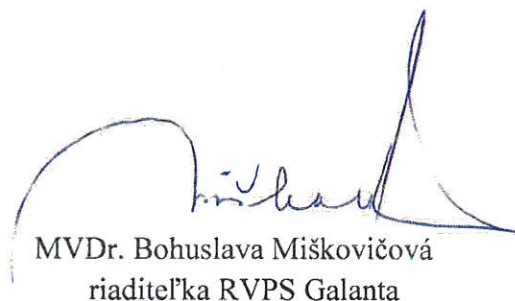 MVDr. Bohuslava Miškovičová
riaditeľka RVPS Galanta